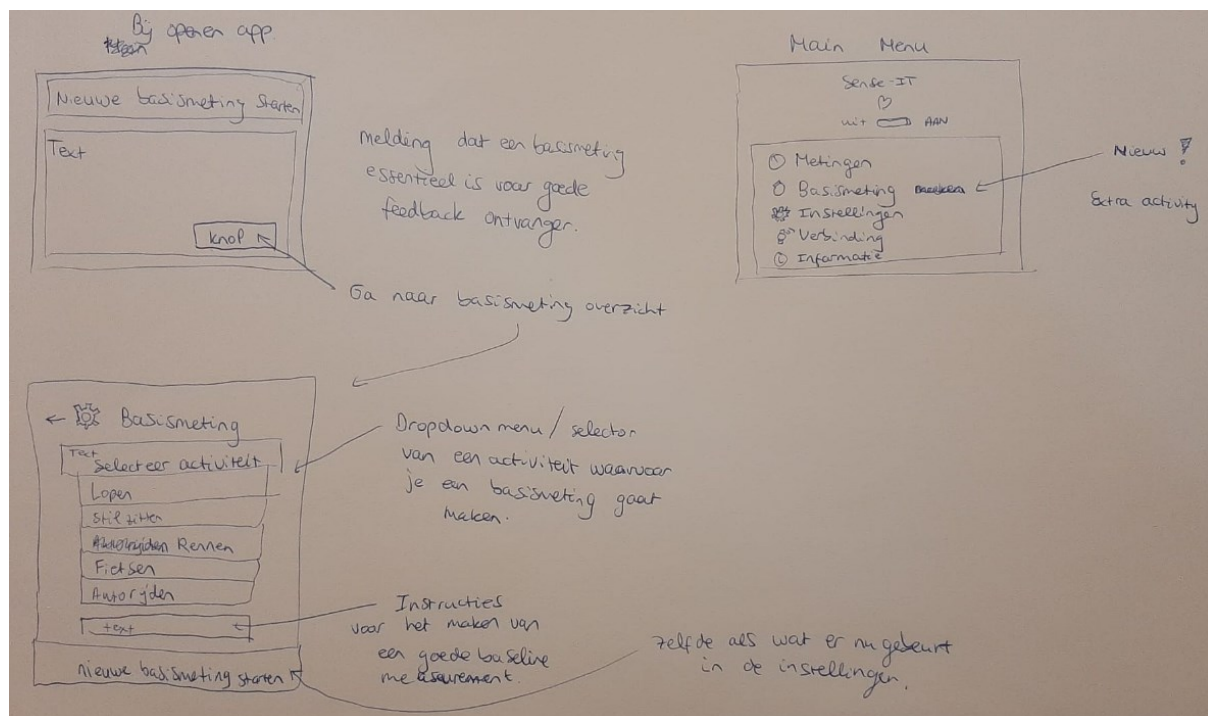 Bij openen app
Nieuwe basismeting starten
Text
knop
melding dat een basismeting
essentieel is voor goede
feedback ontvanger.
Ga naar basismeting overzicht
Main Menu
Sense-IT
uit AAN
Metingen
Basismeting
Instellingen
Verbinding
Informatie
Nieuw !
Extra activity
← Basismeting
Text
Selecteer activiteit
Lopen
Stil zitten
Rennen
Fietsen
Autorijden
text
nieuwe basismeting starten
Dropdown menu / selector
van een activiteit waarvoor
je een basismeting gaat
maken.
Instructies
voor het maken van
een goede baseline
measurement.
zelfde als wat er nu gebeurt
in de instellingen.